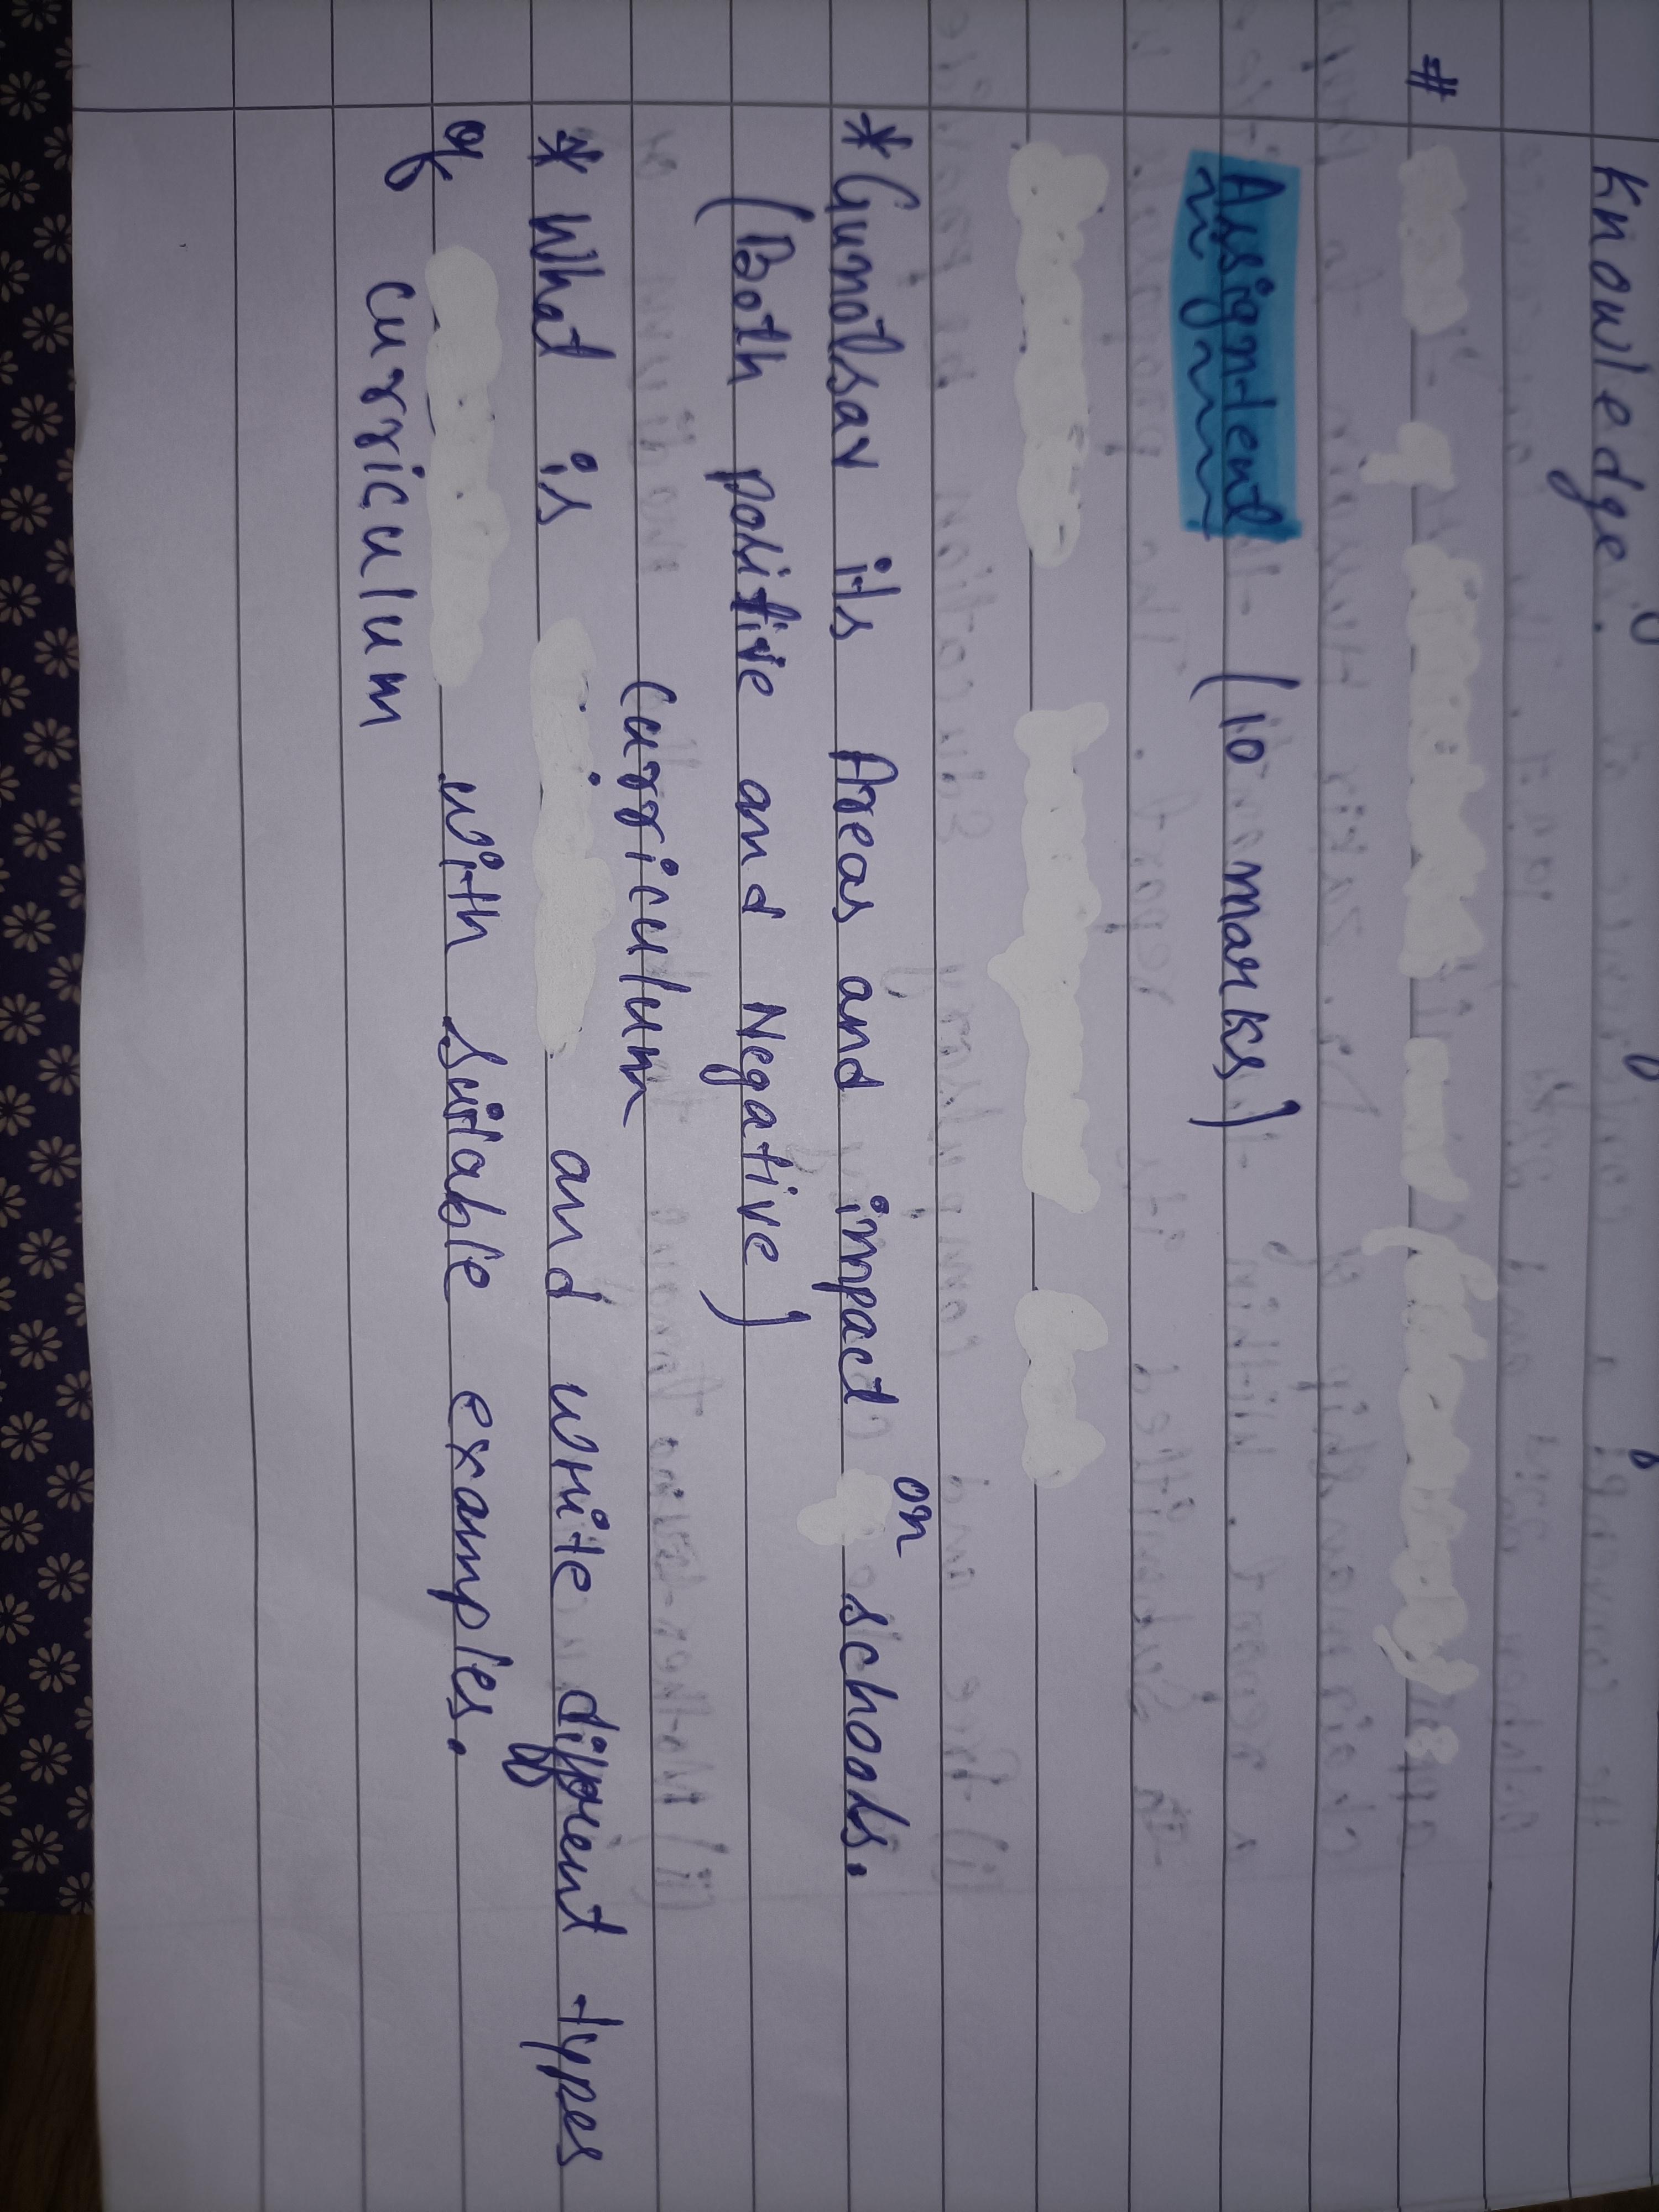 Knowledge.
#
Assignment (10 marks)
* Gunotsav its Areas and impact on schools.
(Both positive and Negative)
curriculum
* What is and write different types
of with suitable examples.
curriculum